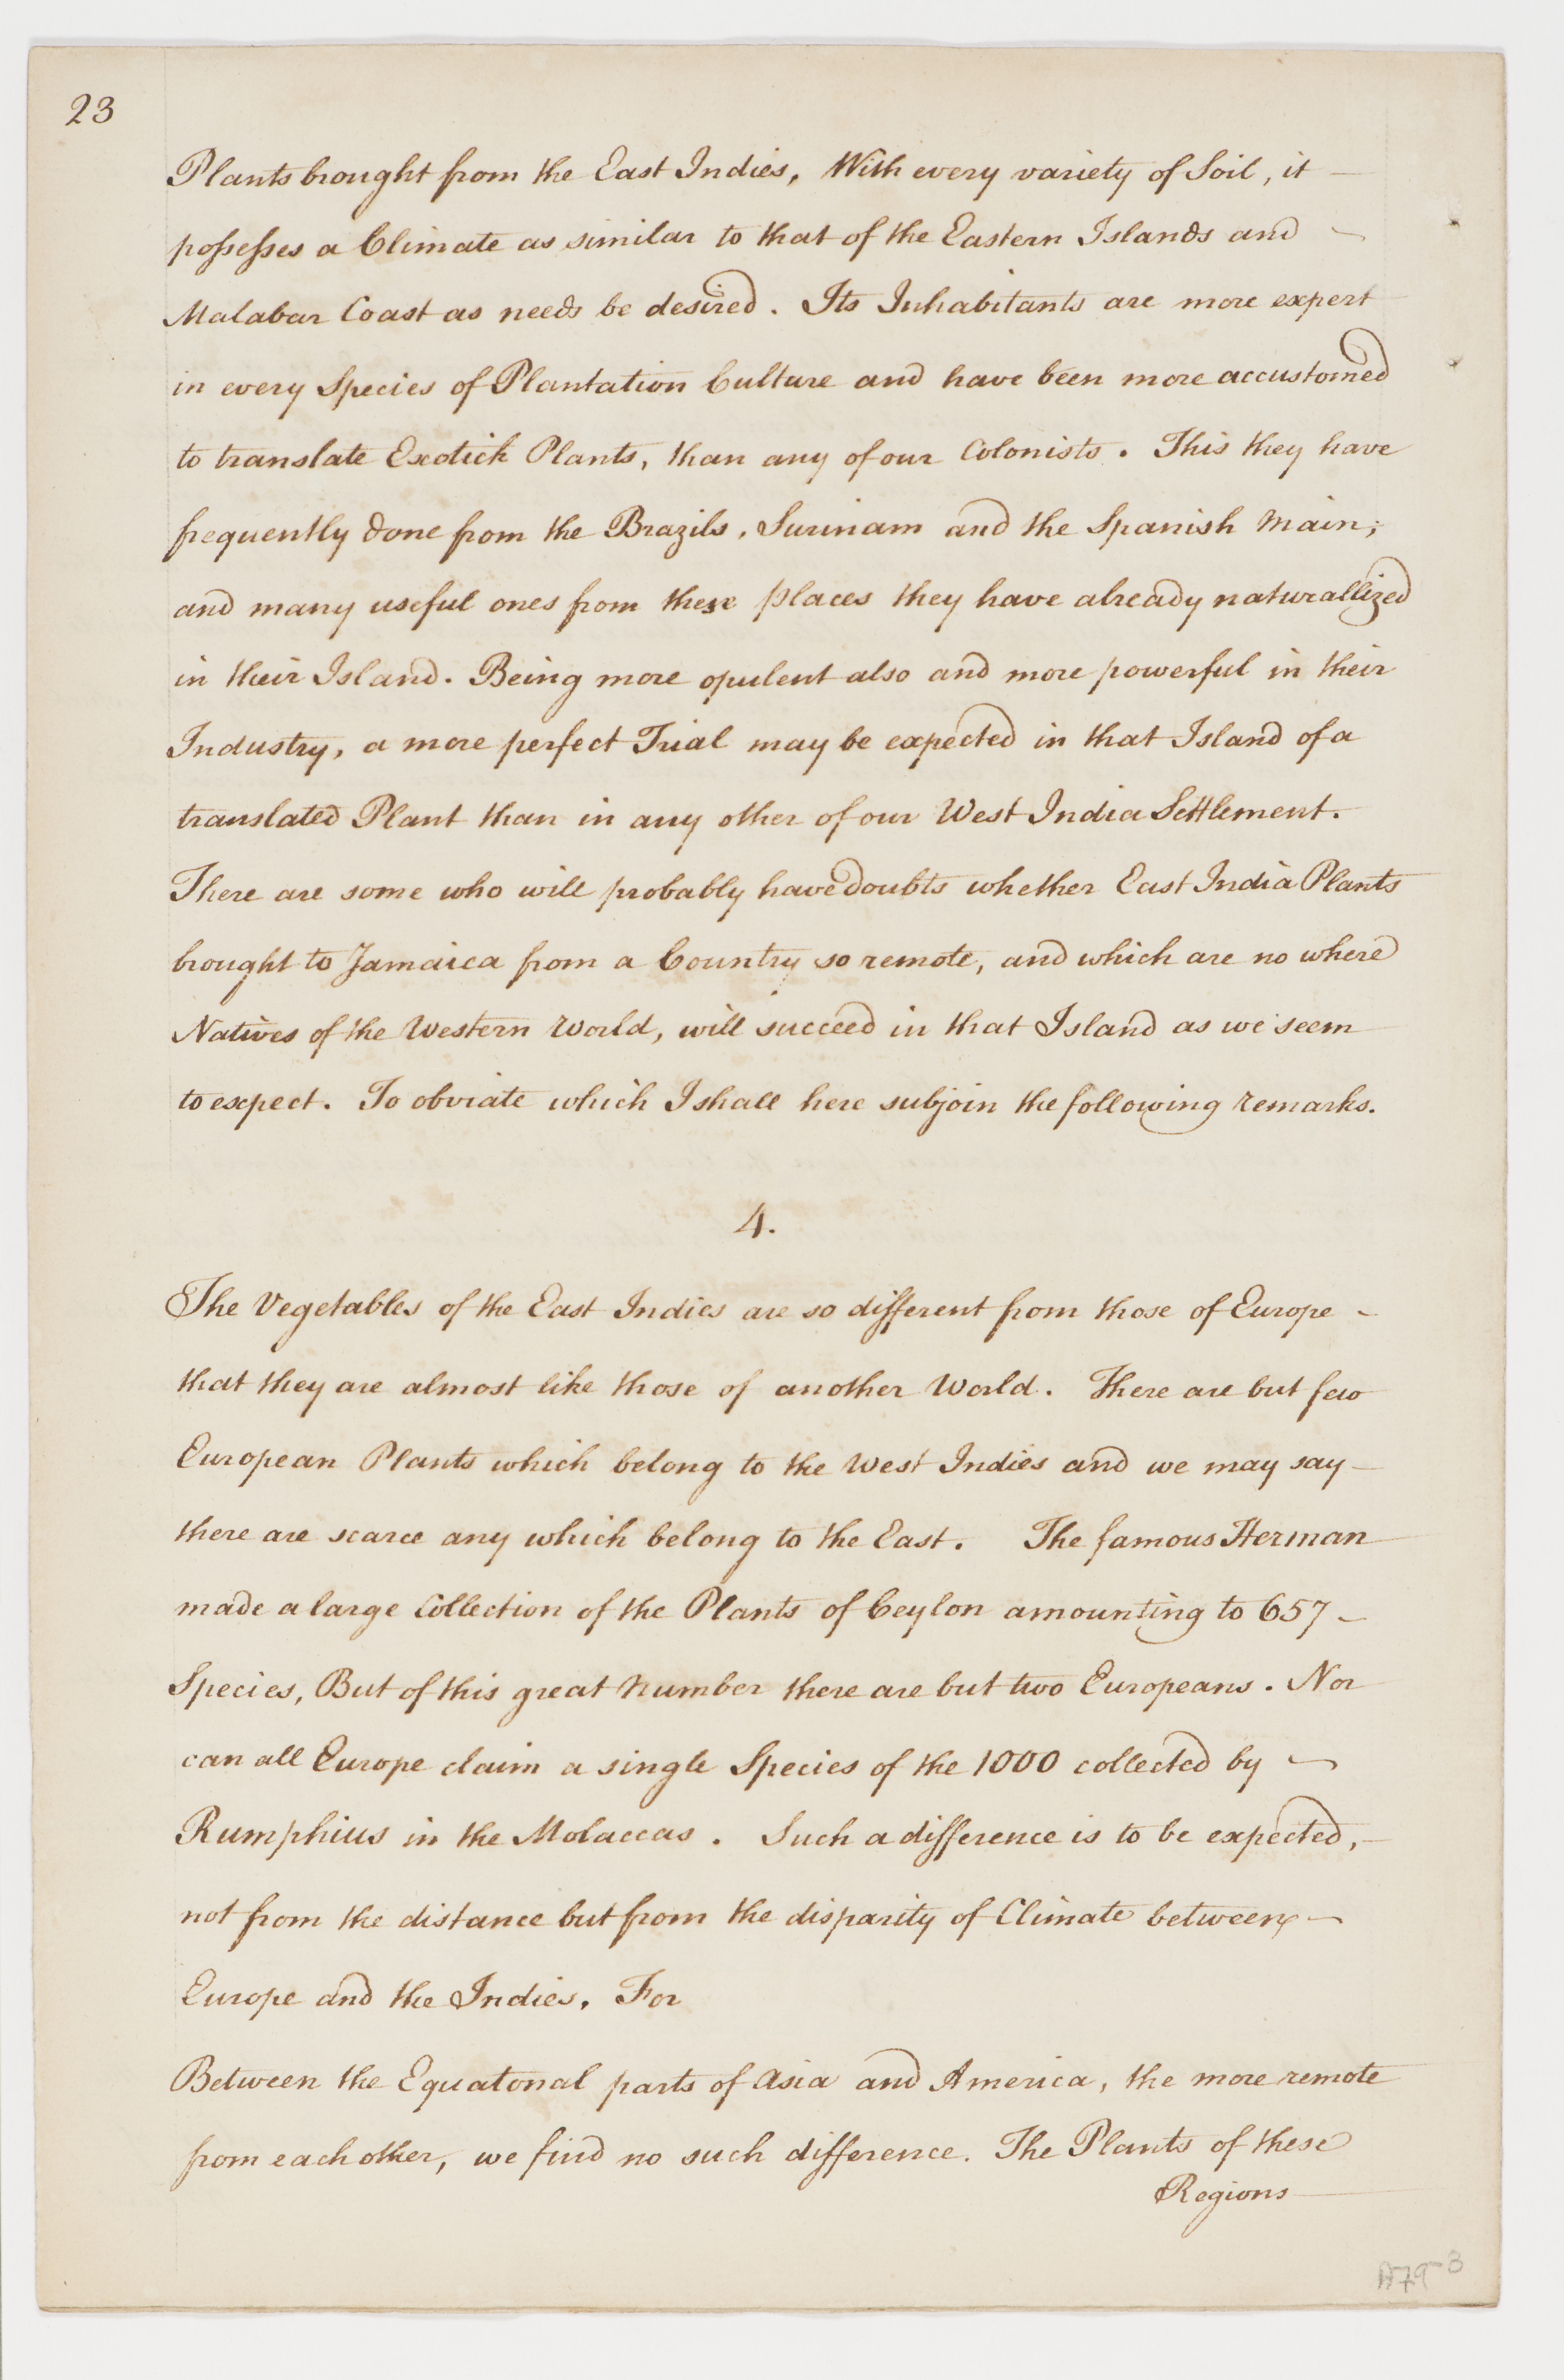 23
Plants brought from the East Indies, With every variety of Soil, it
possesses a Climate as similar to that of the Eastern Islands and
Malabar Coast as needs be desired. Its Inhabitants are more expert
in every Species of Plantation Culture and have been more accustomed
to translate Exotick Plants, than any of our Colonists. This they have
frequently done from the Brazils, Surinam and the Spanish Main;
and many useful ones from these places they have already naturallized
in their Island. Being more opulent also and more powerful in their
Industry, a more perfect Trial may be expected in that Island of a
translated Plant than in any other of our West India Settlement.
There are some who will probably have doubts whether East India Plants
brought to Jamaica from a Country so remote, and which are no where
Natives of the Western World, will succeed in that Island as we seem
to expect. To obviate which I shall here subjoin the following remarks.
4.
The Vegetables of the East Indies are so different from those of Europe
that they are almost like those of another World. There are but few
European Plants which belong to the West Indies and we may say
there are scarce any which belong to the East. The famous Herman
made a large Collection of the Plants of Ceylon amounting to 657
Species, But of this great Number there are but two Europeans. Nor
can all Europe claim a single Species of the 1000 collected by
Rumphius in the Molaccas. Such a difference is to be expected,
not from the distance but from the disparity of Climate between
Europe and the Indies. For
Between the Equatorial parts of Asia and America, the more remote
from each other, we find no such difference. The Plants of these
Regions
A79-3